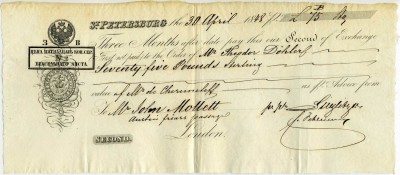 St. Petersburg the 30 April 1838 for £ 75 Stg
Three Months after date pay this our Second of Exchange
first not paid to the Order of Mr Theodor Döhler
Seventy five Pounds Sterling
value of Mr de as pr Advice from
To Mr John Mollett
Austin friars passage
London.
SECOND.
З В
ЦѢНА
ВЕКСЕЛЬНАГО ЛИСТА